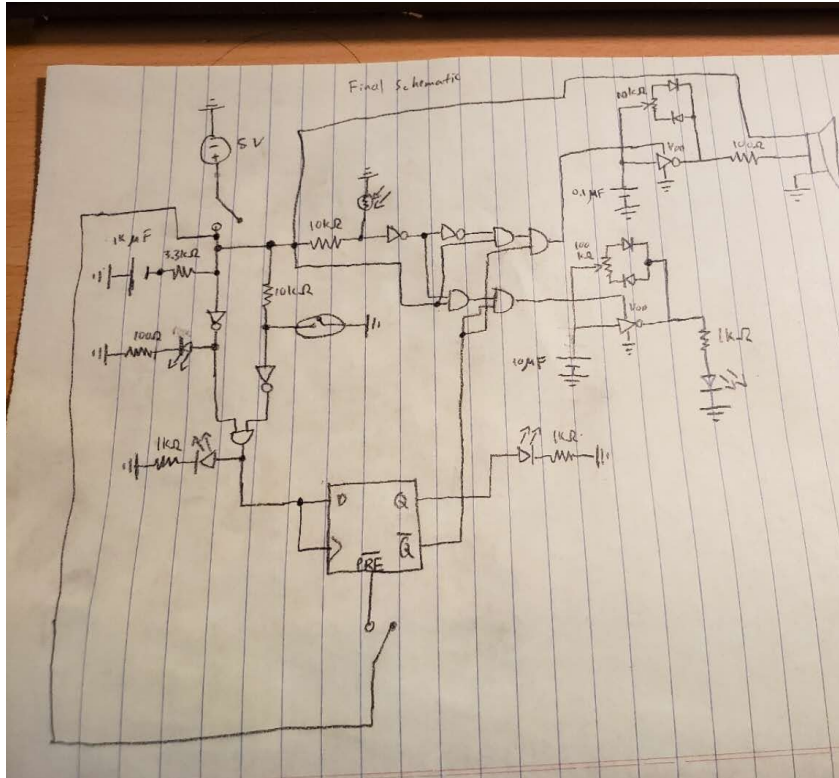 Final Schematic
5V
10kΩ
VDD
100Ω
0.1μF
1kμF
3.3kΩ
10kΩ
10kΩ
100
kΩ
VDD
10μF
1kΩ
100Ω
1kΩ
1kΩ
D
Q
Q̅
P̅R̅E̅